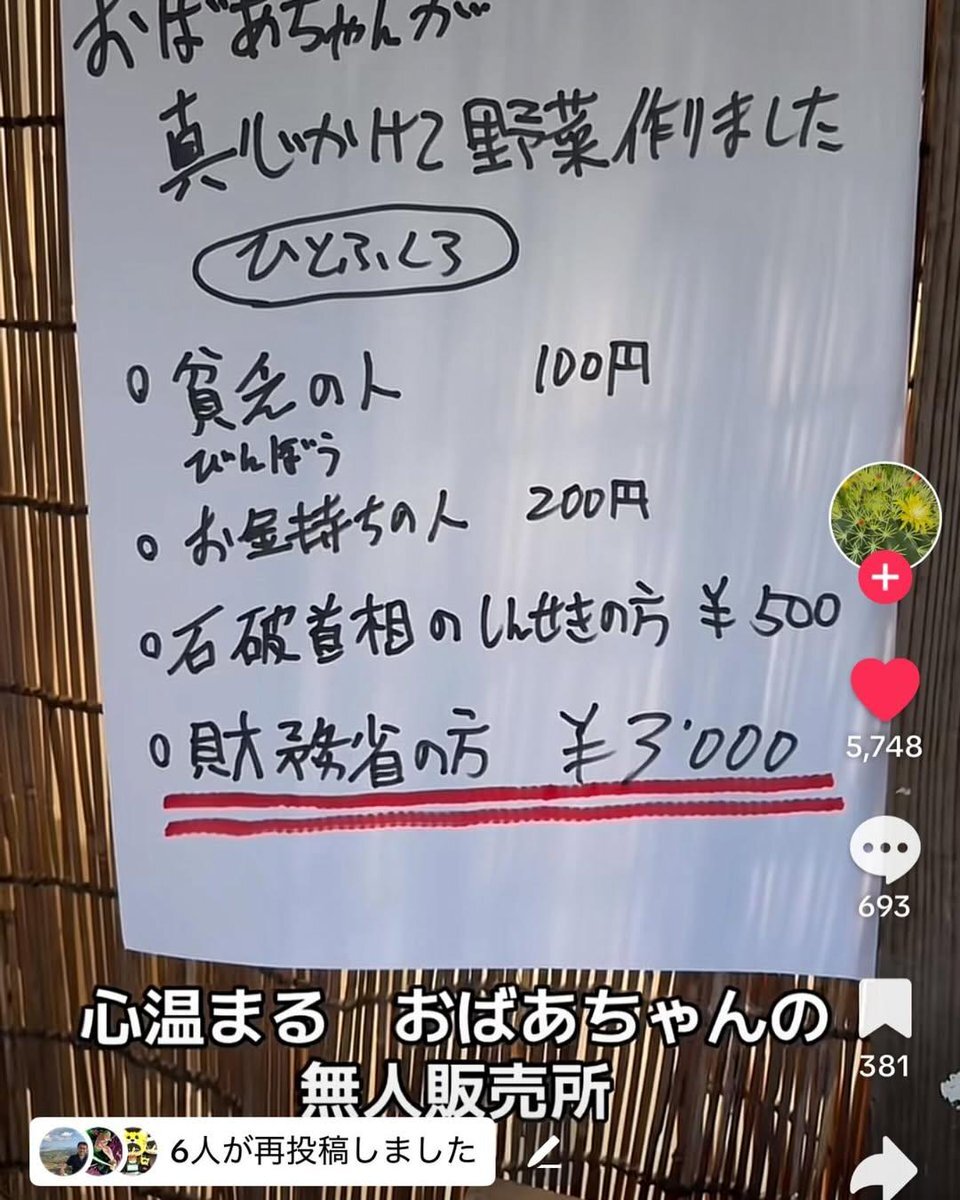 おばあちゃんが
真心かけて野菜作りました
ひとふくろ
○貧乏の人 100円
びんぼう
○お金持ちの人 200円
○石破首相のしんせきの方 ¥500
○財務省の方 ¥3'000
5,748
693
381
心温まる おばあちゃんの
無人販売所
6人が再投稿しました